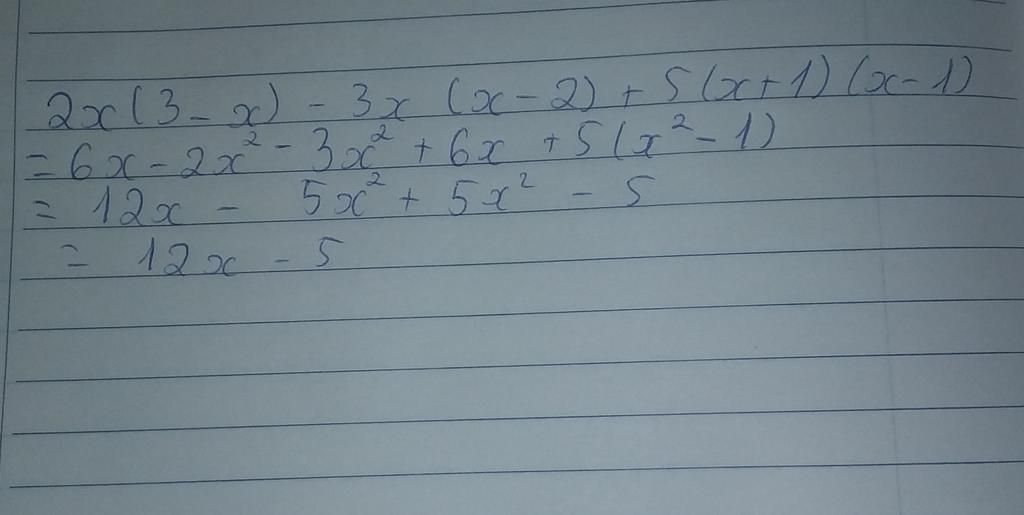 2x(3-x) - 3x (x-2) + 5(x+1)(x-1)
= 6x - 2x² - 3x² + 6x + 5(x²-1)
= 12x - 5x² + 5x² - 5
= 12x - 5